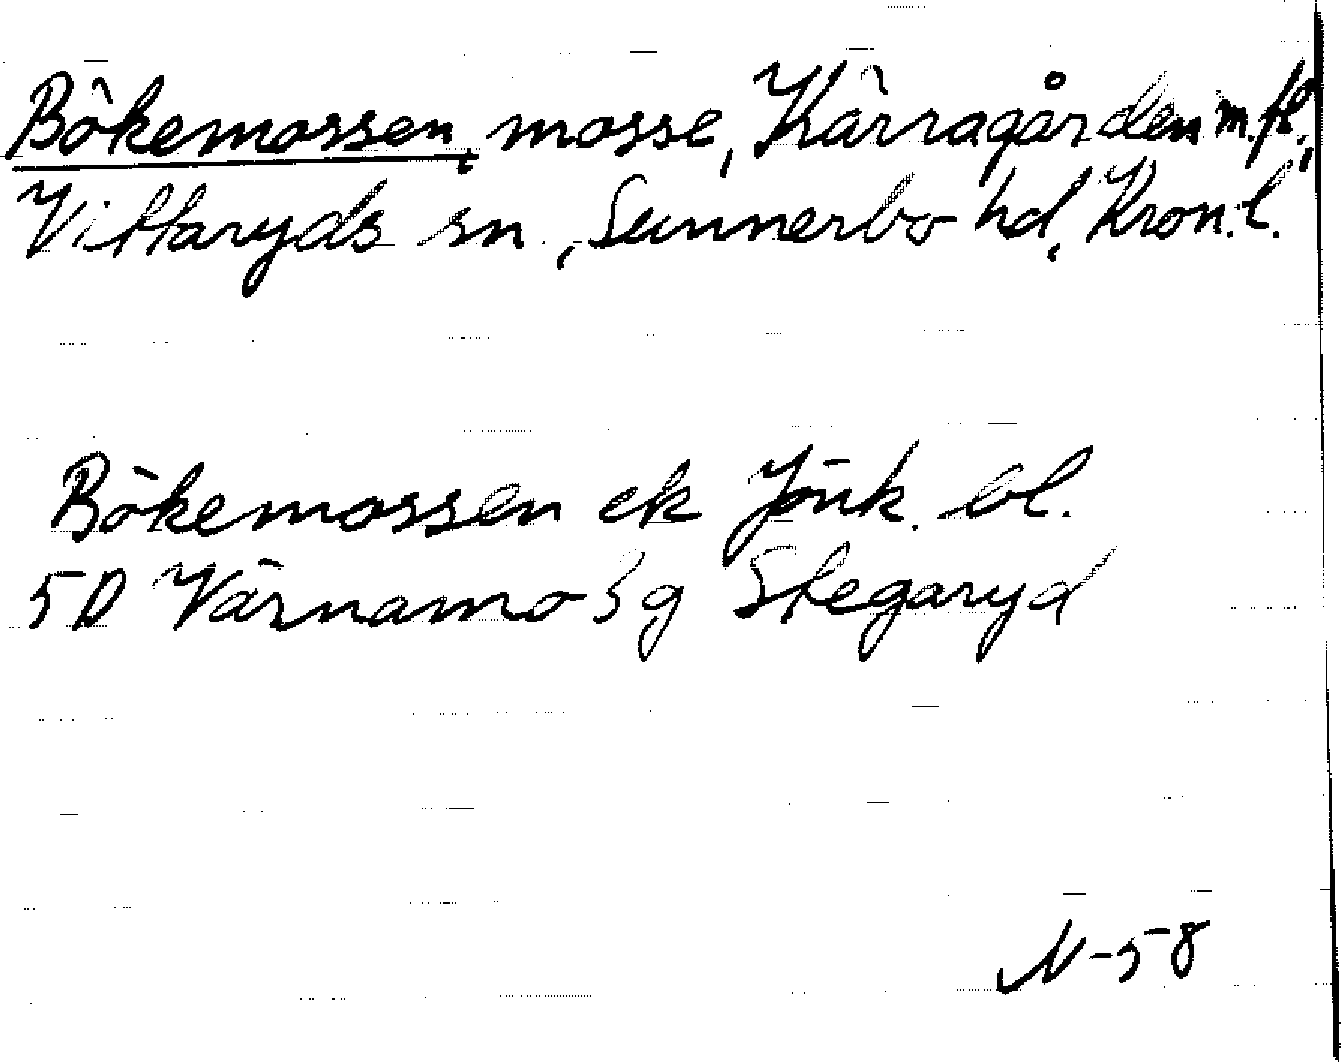 Bökemossen, mosse, Kärragården m.fl.,
Vittaryds sn., Sunnerbo hd, Kron.l.
Bökemossen ek Jönk. bl.
5D Värnamo 3g Stegaryd
N-58